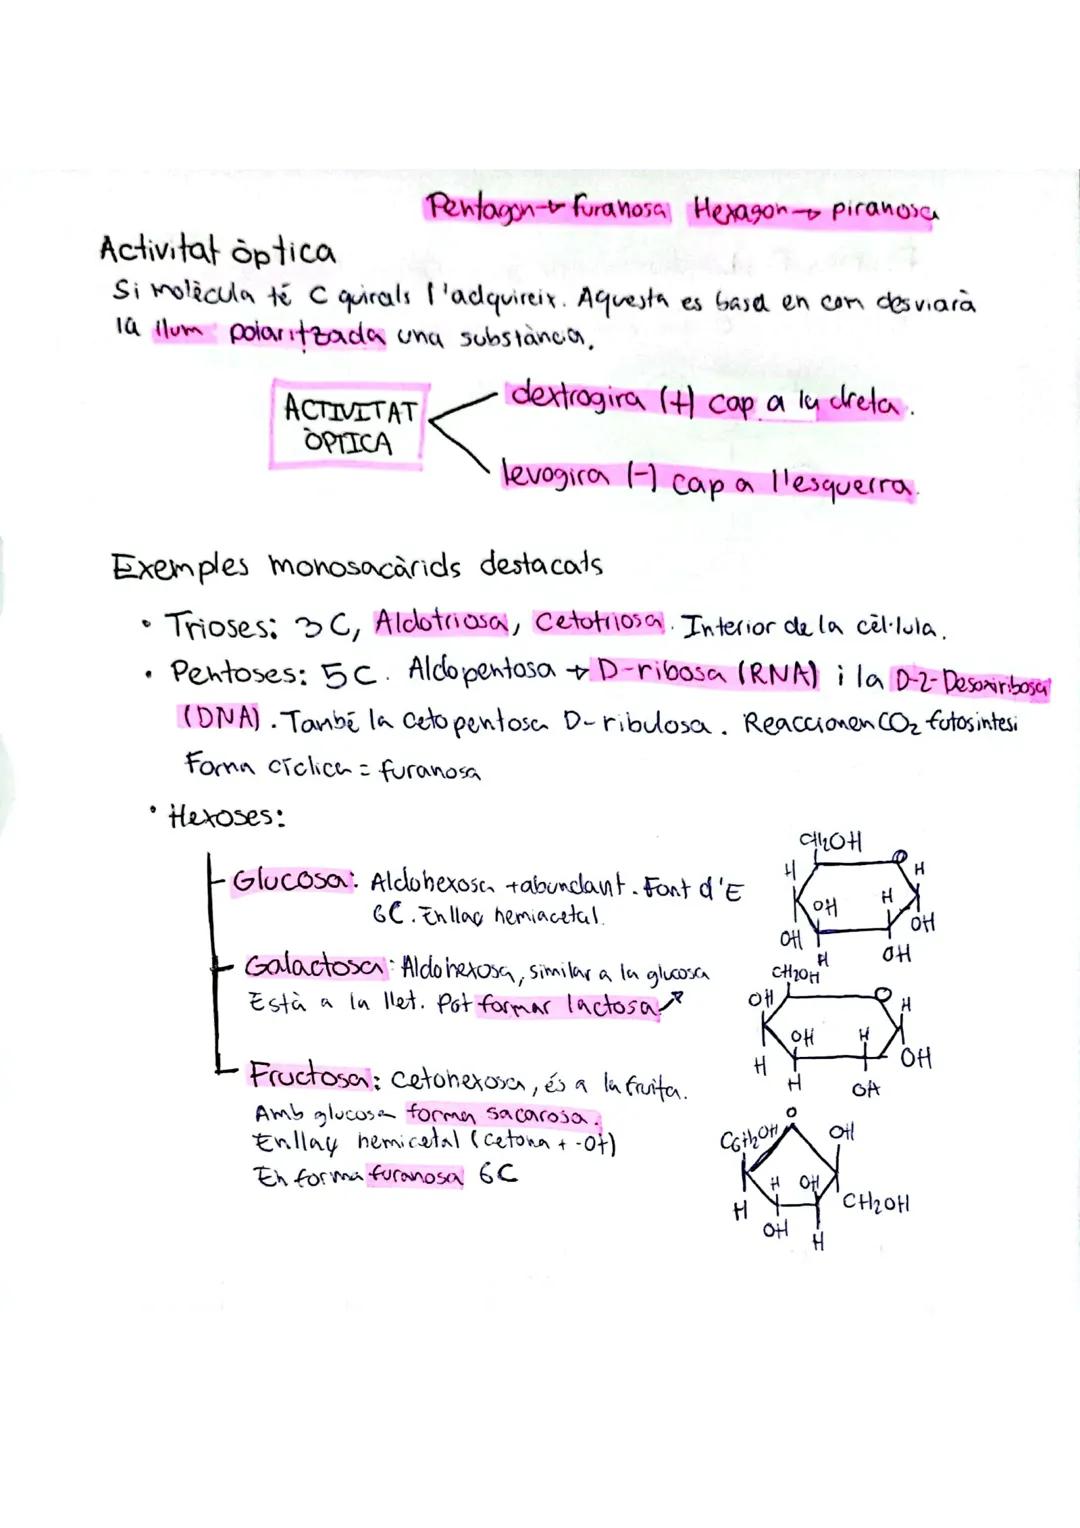 Pentagon → furanosa Hexagon → piranosa
Activitat òptica
Si molècula té C quirals l'adquireix. Aquesta es basa en com desviarà
la llum polaritzada una substància.
ACTIVITAT
ÒPTICA
dextrogira (+) cap a la dreta.
levogira (-) cap a l'esquerra.
Exemples monosacàrids destacats
• Trioses: 3C, Aldotriosa, Cetotriosa. Interior de la cèl·lula.
• Pentoses: 5C. Aldopentosa → D-ribosa (RNA) i la D-2-Desoxiribosa
(DNA). També la cetopentosa D-ribulosa. Reaccionen CO2 fotosintesi
Forma cíclica = furanosa
• Hexoses:
Glucosa: Aldohexosa +abundant. Font d'E
6C. Enllaç hemiacetal.
Galactosa: Aldohexosa, similar a la glucosa
Està a la llet. Pot formar lactosa
Fructosa: cetohexosa, és a la fruita.
Amb glucosa forma sacarosa.
Enllaç hemicetal (cetona + -OH)
En forma furanosa 6C
CH2OH
H O H
OH H
OH OH
H OH
CH2OH
OH O H
OH H
H OH
H OH
O
OH
H OH
H CH2OH
OH
H